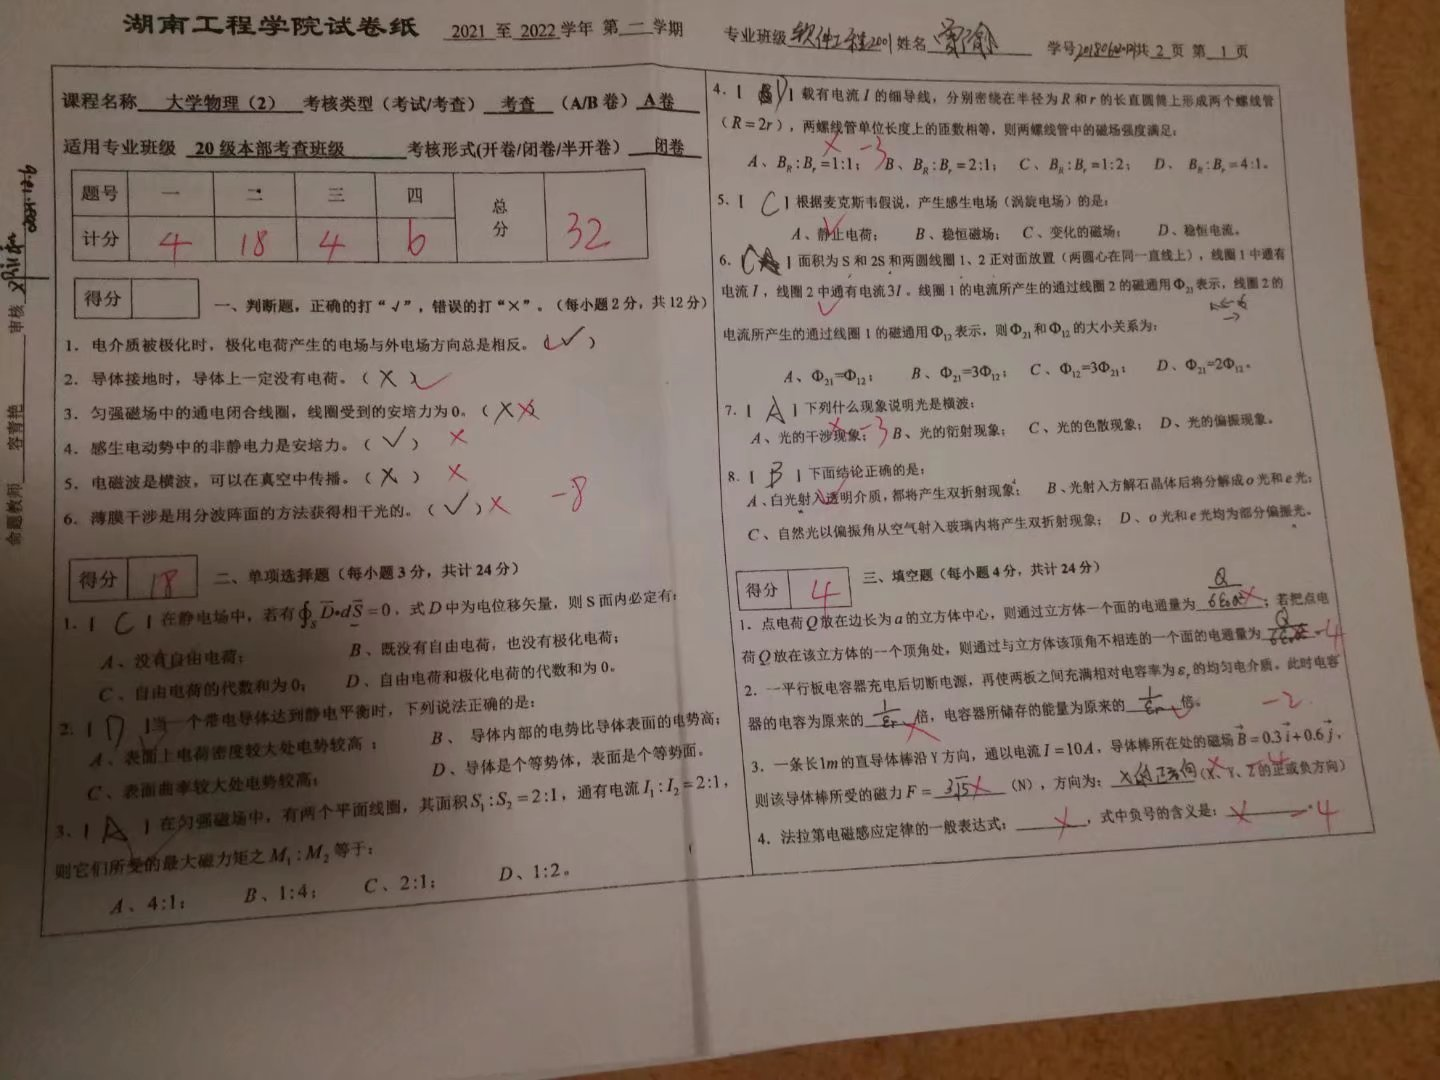 湖南工程学院试卷纸 2021 至 2022 学年 第 二 学期
专业班级 软件工程2001 姓名 学号 共 2 页 第 1 页
课程名称 大学物理（2） 考核类型（考试/考查） 考查 （A/B 卷） A 卷
适用专业班级 20 级本部考查班级 考核形式(开卷/闭卷/半开卷) 闭卷
题号 一 二 三 四 总分
计分 4 18 4 6 32
命题教师 容青艳 审核
得分
一、判断题，正确的打“√”，错误的打“×”。（每小题 2 分，共 12 分）
1．电介质被极化时，极化电荷产生的电场与外电场方向总是相反。（√）
2．导体接地时，导体上一定没有电荷。（ X ）
3．匀强磁场中的通电闭合线圈，线圈受到的安培力为 0。（ X ）×
4．感生电动势中的非静电力是安培力。（ √ ） ×
5．电磁波是横波，可以在真空中传播。（ X ） ×
6．薄膜干涉是用分波阵面的方法获得相干光的。（ √ ）× -8
得分 18 二、单项选择题（每小题 3 分，共计 24 分）
1.［ C ］在静电场中，若有∮ₛD̅•dS̅=0，式 D 中为电位移矢量，则 S 面内必定有：
A、没有自由电荷； B、既没有自由电荷，也没有极化电荷；
C、自由电荷的代数和为 0； D、自由电荷和极化电荷的代数和为 0。
2.［ D ］当一个带电导体达到静电平衡时，下列说法正确的是：
A、表面上电荷密度较大处电势较高； B、导体内部的电势比导体表面的电势高；
C、表面曲率较大处电势较高； D、导体是个等势体，表面是个等势面。
3.［ A ］在匀强磁场中，有两个平面线圈，其面积S₁:S₂=2:1，通有电流I₁:I₂=2:1，
则它们所受的最大磁力矩之M₁:M₂等于：
A、4:1； B、1:4； C、2:1； D、1:2。
4.［ D ］载有电流 I 的细导线，分别密绕在半径为 R 和 r 的长直圆筒上形成两个螺线管
（R=2r），两螺线管单位长度上的匝数相等，则两螺线管中的磁场强度满足： × -3
A、B_R:B_r=1:1； B、B_R:B_r=2:1； C、B_R:B_r=1:2； D、B_R:B_r=4:1。
5.［ C ］根据麦克斯韦假说，产生感生电场（涡旋电场）的是：
A、静止电荷； B、稳恒磁场； C、变化的磁场； D、稳恒电流。
6.［ C ］面积为 S 和 2S 和两圆线圈 1、2 正对面放置（两圆心在同一直线上），线圈 1 中通有
电流 I，线圈 2 中通有电流3I。线圈 1 的电流所产生的通过线圈 2 的磁通用Φ₂₁表示，线圈 2 的
电流所产生的通过线圈 1 的磁通用Φ₁₂表示，则Φ₂₁和Φ₁₂的大小关系为：
A、Φ₂₁=Φ₁₂； B、Φ₂₁=3Φ₁₂； C、Φ₁₂=3Φ₂₁； D、Φ₂₁=2Φ₁₂。
7.［ A ］下列什么现象说明光是横波： × -3
A、光的干涉现象； B、光的衍射现象； C、光的色散现象； D、光的偏振现象。
8.［ B ］下面结论正确的是：
A、白光射入透明介质，都将产生双折射现象； B、光射入方解石晶体后将分解成 o 光和 e 光；
C、自然光以偏振角从空气射入玻璃内将产生双折射现象； D、o 光和 e 光均为部分偏振光。
得分 4 三、填空题（每小题 4 分，共计 24 分）
1．点电荷Q放在边长为a的立方体中心，则通过立方体一个面的电通量为 Q/6ε₀a² ×；若把点电
荷Q放在该立方体的一个顶角处，则通过与立方体该顶角不相连的一个面的电通量为 -4
2．一平行板电容器充电后切断电源，再使两板之间充满相对电容率为εᵣ的均匀电介质。此时电容
器的电容为原来的 1/εr × 倍，电容器所储存的能量为原来的 1/εr 倍。 -2
3．一条长1m的直导体棒沿 Y 方向，通以电流I=10A，导体棒所在处的磁场B⃗=0.3i⃗+0.6j⃗，
则该导体棒所受的磁力F= 3√5 × （N），方向为： X的正方向 ×（X、Y、Z 的正或负方向） -4
4．法拉第电磁感应定律的一般表达式： × ，式中负号的含义是： × 。 -4